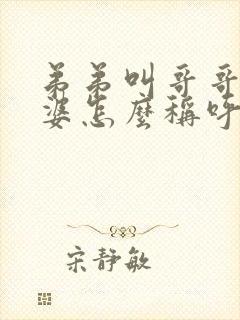 弟弟叫哥哥
婆怎麼稱呼
宋靜敏